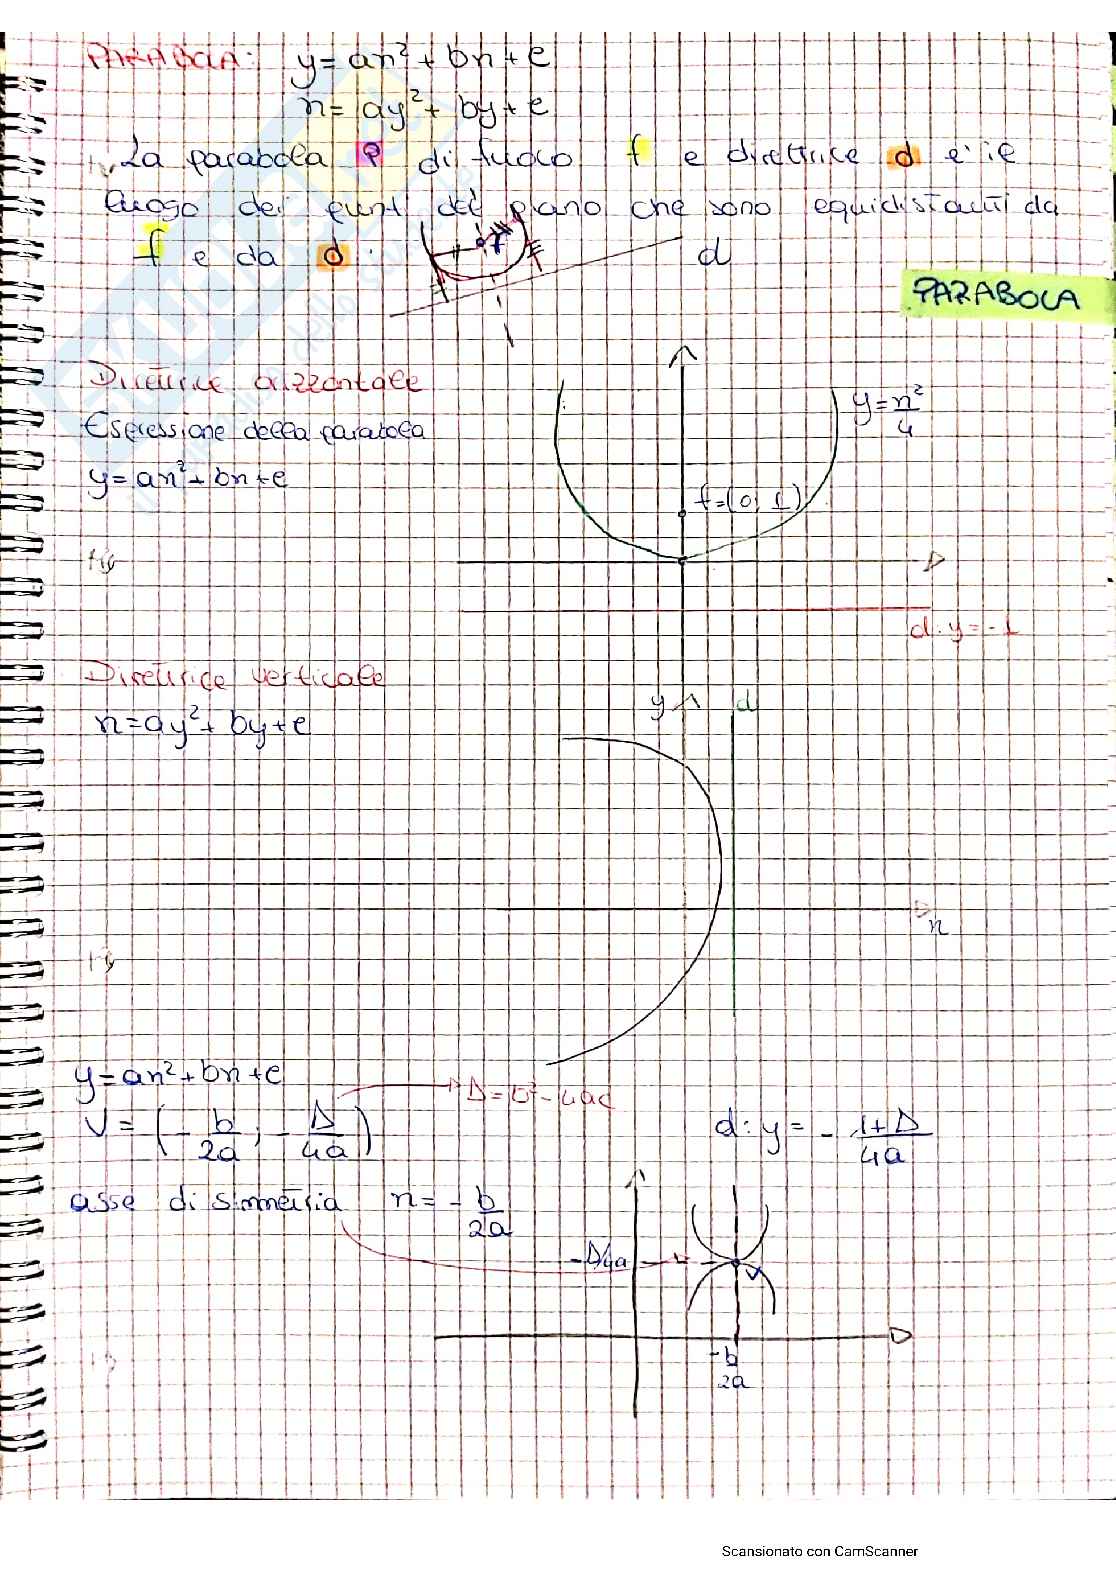 PARABOLA: y = ax² + bx + c
x = ay² + by + c
La parabola P di fuoco f e direttrice d e' il
luogo dei punti del piano che sono equidistanti da
f e da d.
f
d
PARABOLA
Direttrice orizzontale
Espressione della parabola
y = ax² + bx + c
y = x²/4
f = (0, 1)
d: y = -1
Direttrice verticale
x = ay² + by + c
y
d
x
y = ax² + bx + c
Δ = b² - 4ac
V = (-b/2a ; -Δ/4a)
d: y = - 1+Δ/4a
asse di simmetria x = - b/2a
-Δ/4a
V
-b/2a
Scansionato con CamScanner